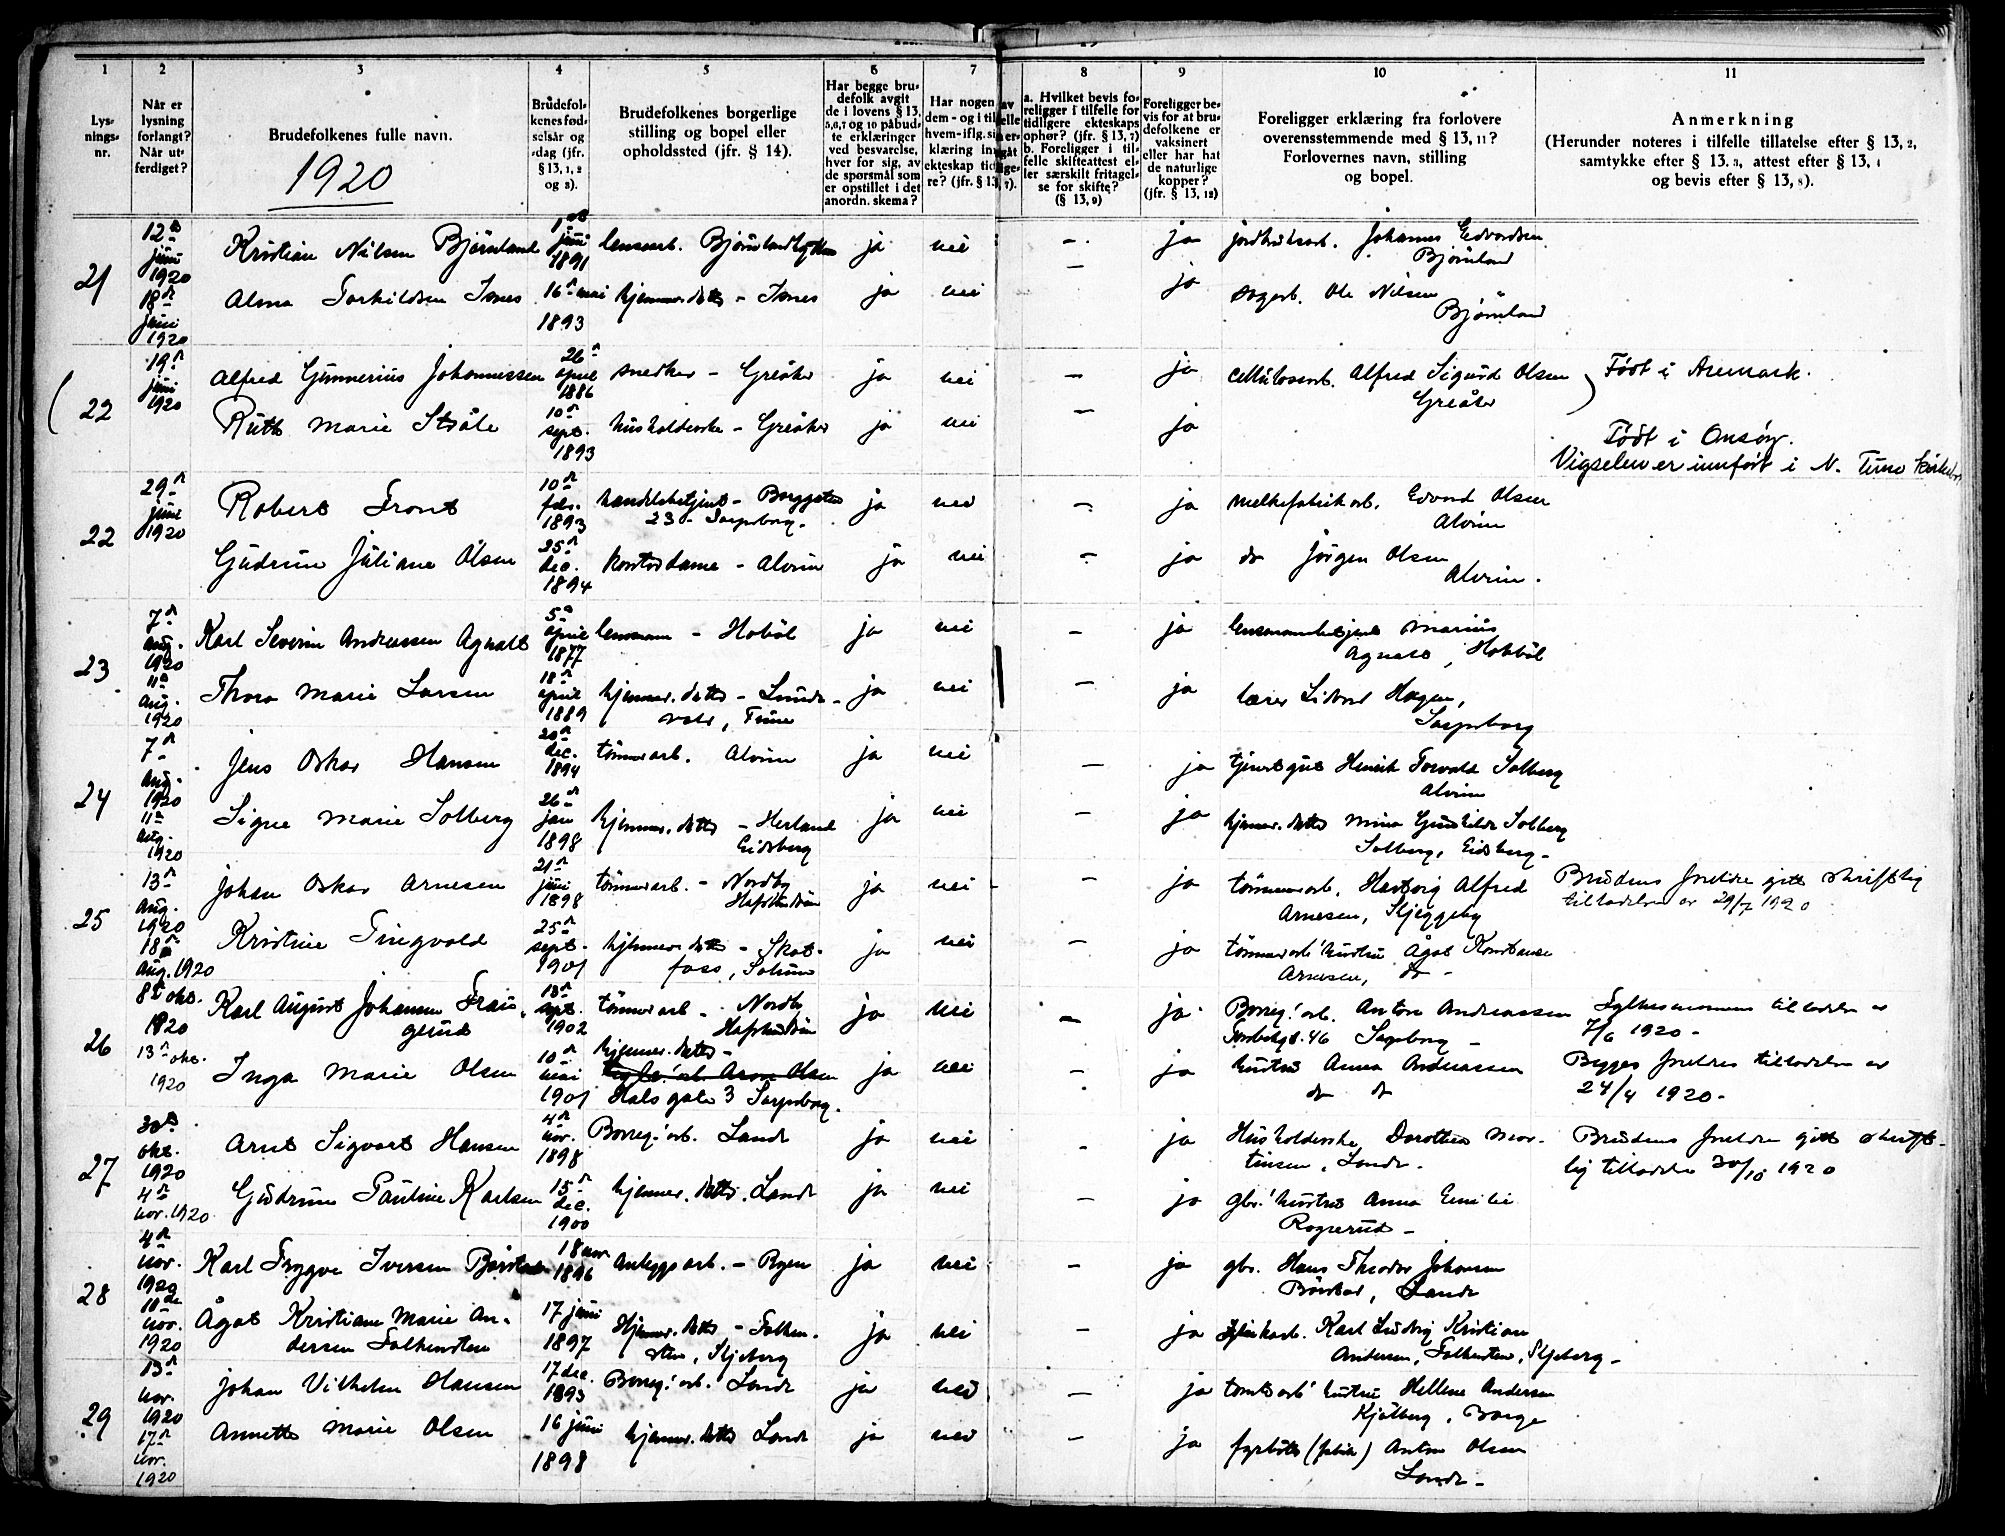 1 2 3 4 5 6 7 8 9 10 11
Lysningsnr.
Når er lysning forlangt? Når utferdiget?
Brudefolkenes fulle navn.
1920
Brudefolkenes fødselsår og -dag (jfr. § 13, 1, 2 og 3).
Brudefolkenes borgerlige stilling og bopel eller opholdssted (jfr. § 14).
Har begge brudefolk avgit de i lovens § 13, 5, 6, 7 og 10 påbudte erklæringer ved besvarelse, hver for sig, av de spørsmål som er opstillet i det anordn. skema?
a. Hvilket bevis foreligger i tilfelle for tidligere ekteskaps ophør? (jfr. § 13, 7) b. Foreligger i tilfelle skifteattest eller særskilt fritagelse for skifte? (§ 13, 9)
Foreligger bevis for at brudefolkene er vaksinert eller har hat de naturlige kopper? (jfr. § 13, 12)
Foreligger erklæring fra forlovere overensstemmende med § 13, 11? Forlovernes navn, stilling og bopel.
Anmerkning
(Herunder noteres i tilfelle tillatelse efter § 13, 2, samtykke efter § 13, 3, attest efter § 13, 4 og bevis efter § 13, 8).
21 12 juni 1920 Kristian Nilsen Bjørnland 1 juni 1891 ja nei – ja Johannes Edvardsen Bjørnland
18 juni 1920 Alma Torkildsen Isnes 16 mai 1893 hjemmev. datter – Isnes ja nei – ja sagarb. Ole Nilsen Bjørnland
22 19 juni 1920 Alfred Gunnerius Johannessen 26 april 1886 snedker – Greåker ja nei – ja cellulosearb. Alfred Sigurd Olsen Greåker Født i Aremark.
Ruth Marie Stråle 10 sept. 1893 husholderske – Greåker ja nei – ja Født i Onsøy.
Vigselen er innført i N. Tune kirkebok
22 29 juni 1920 Robert Front 10 febr. 1893 handelsbetjent – Borggaten 23 – Sarpsborg. ja nei – ja melkefabrikarb. Edvard Olsen Alvim
Gudrun Juliane Olsen 25 dec. 1894 kontordame – Alvim ja nei – ja do Jørgen Olsen Alvim.
23 7 aug. 1920 Karl Severin Andreassen Agnalt 5 april 1877 lensmann – Hobøl ja nei – ja lensmannbetjent Marius Agnalt, Hobbøl
11 aug. 1920 Thora Marie Larsen 18 april 1889 hjemmev. datter – Tune ja nei – ja lærer Sidvart Hagen, Sarpsborg
24 7 aug. 1920 Jens Oskar Hansen 20 dec. 1894 tømmerarb. Alvim ja nei – ja tjenestegut Henrik Torvald Solberg Alvim
11 aug. 1920 Signe Marie Solberg 26 jan 1898 hjemmev. datter – Herland Eidsberg ja nei – ja hjemmev. datter Mina Gunhilde Solberg Solberg, Eidsberg –
25 13 aug. 1920 Johan Oskar Arnesen 21 juni 1898 tømmerarb. – Nordby Hafslundsøen ja nei – ja tømmerarb. Hartvig Alfred Arnesen, Skjeggeby Brudens foreldre gitt skriftlig tilladelse av 29/7 1920
18 aug. 1920 Kristine Tingvold 25 sept. 1901 hjemmev. datter – Skotfoss, Solum ja nei – ja tømmerarb' hustru Ågot Konstanse Arnesen, do –
26 8 okt. 1920 Karl August Johansen Fraugerud 13 sept. 1902 tømmerarb – Nordby Hafslundsøen ja nei – ja Borreg.'arb. Anton Andreassen 46 Sarpsborg – Fylkesmannens tilladelse av 7/6 1920 –
13 okt. 1920 Inga Marie Olsen 10 mai 1901 hjemmev. datter – Hals gate 3 Sarpsborg. ja nei – ja hustru Anna Andreassen do do Begges foreldres tilladelse av 24/4 1920 –
27 30 okt. 1920 Arnt Sigvart Hansen 4 nov. 1898 Borreg.'arb. Lande ja nei – ja Husholderske Dorothea Mortinsen, Lande. Brudens foreldre gitt skriftlig tilladelse 30/10 1920
4 nov. 1920 Gudrun Pauline Karlsen 15 dec. 1900 hjemmev. datter. Lande ja nei – ja gbr.' hustru Anna Emilie Rognerud –
28 4 nov. 1920 Karl Trygve Iversen 18 nov. 1896 Anleggsarb. – Ryen ja nei – ja gbr. Hans Theodor Johansen Lande
10de nov. 1920 Ågot Kristiane Marie Andersen Falkensten 17 juni 1897 Hjemmev. datter – Falkensten, Skjeberg ja nei – ja Karl Ludvig Kristian Andersen, Falkensten, Skjeberg –
29 13 nov. 1920 Johan Vilhelm Hansen 17 dec. 1893 Borreg.'arb. Lande ja nei – ja tomtearb' hustru Hellene Andersen Kjølberg, Borge
17 nov. 1920 Annette Marie Olsen 16 juni 1898 hjemmev. datter Lande ja nei – ja fyrbøter (fabrik) Anton Olsen Lande –